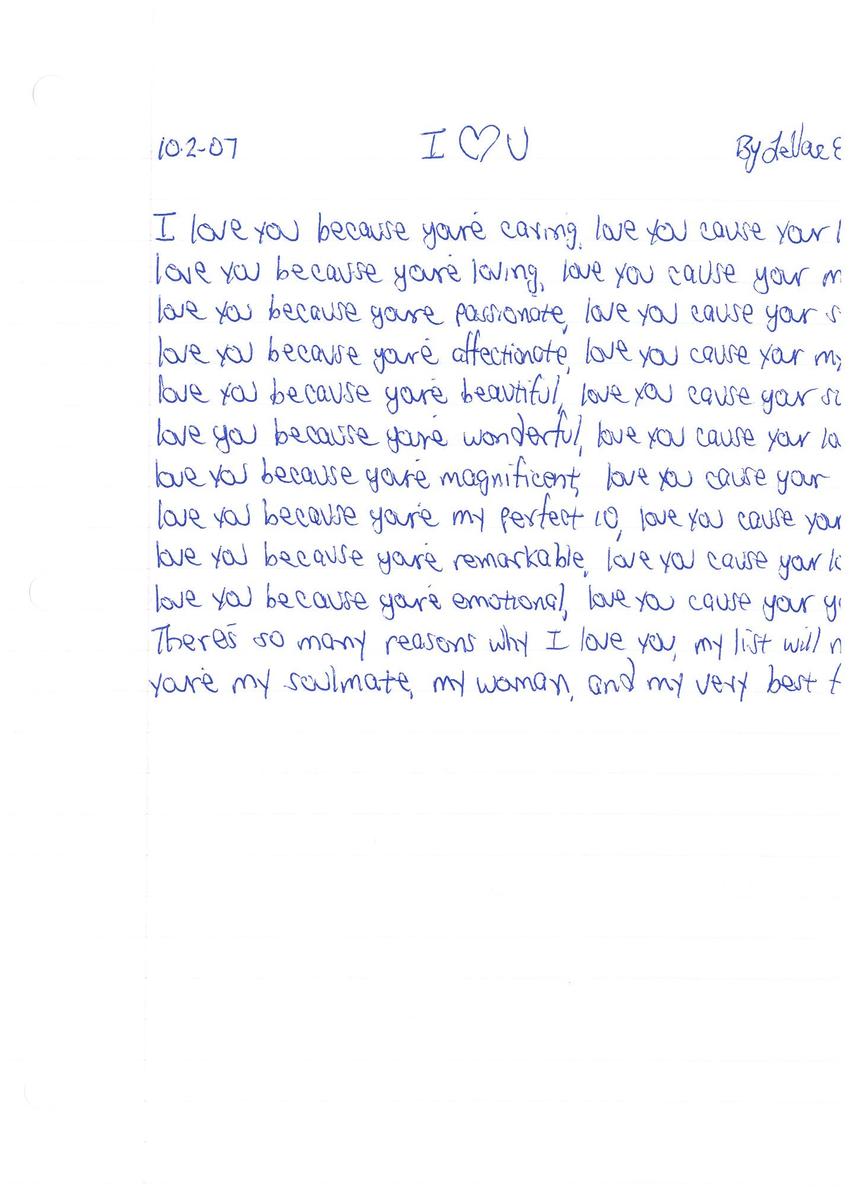 10.2-07 I ♡ U By LeVar
I love you because you're caring, love you cause your
love you because you're loving, love you cause your
love you because you're passionate, love you cause your
love you because you're affectionate, love you cause your
love you because you're beautiful, love you cause your
love you because you're wonderful, love you cause your
love you because you're magnificent, love you cause your
love you because you're my perfect 10, love you cause your
love you because you're remarkable, love you cause your
love you because you're emotional, love you cause your
There's so many reasons why I love you, my list will
you're my soulmate, my woman, and my very best